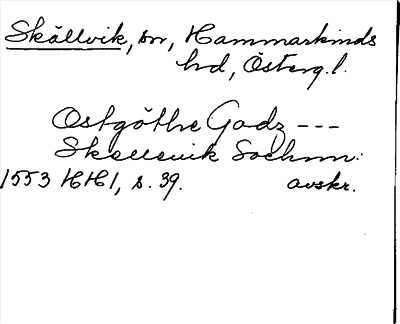 Skällvik, sn, Hammarkinds
hd, Österg. l.
Ostgöthe Godz ---
Skellewik Sochnn:
1553 HH 1, s. 39. avskr.